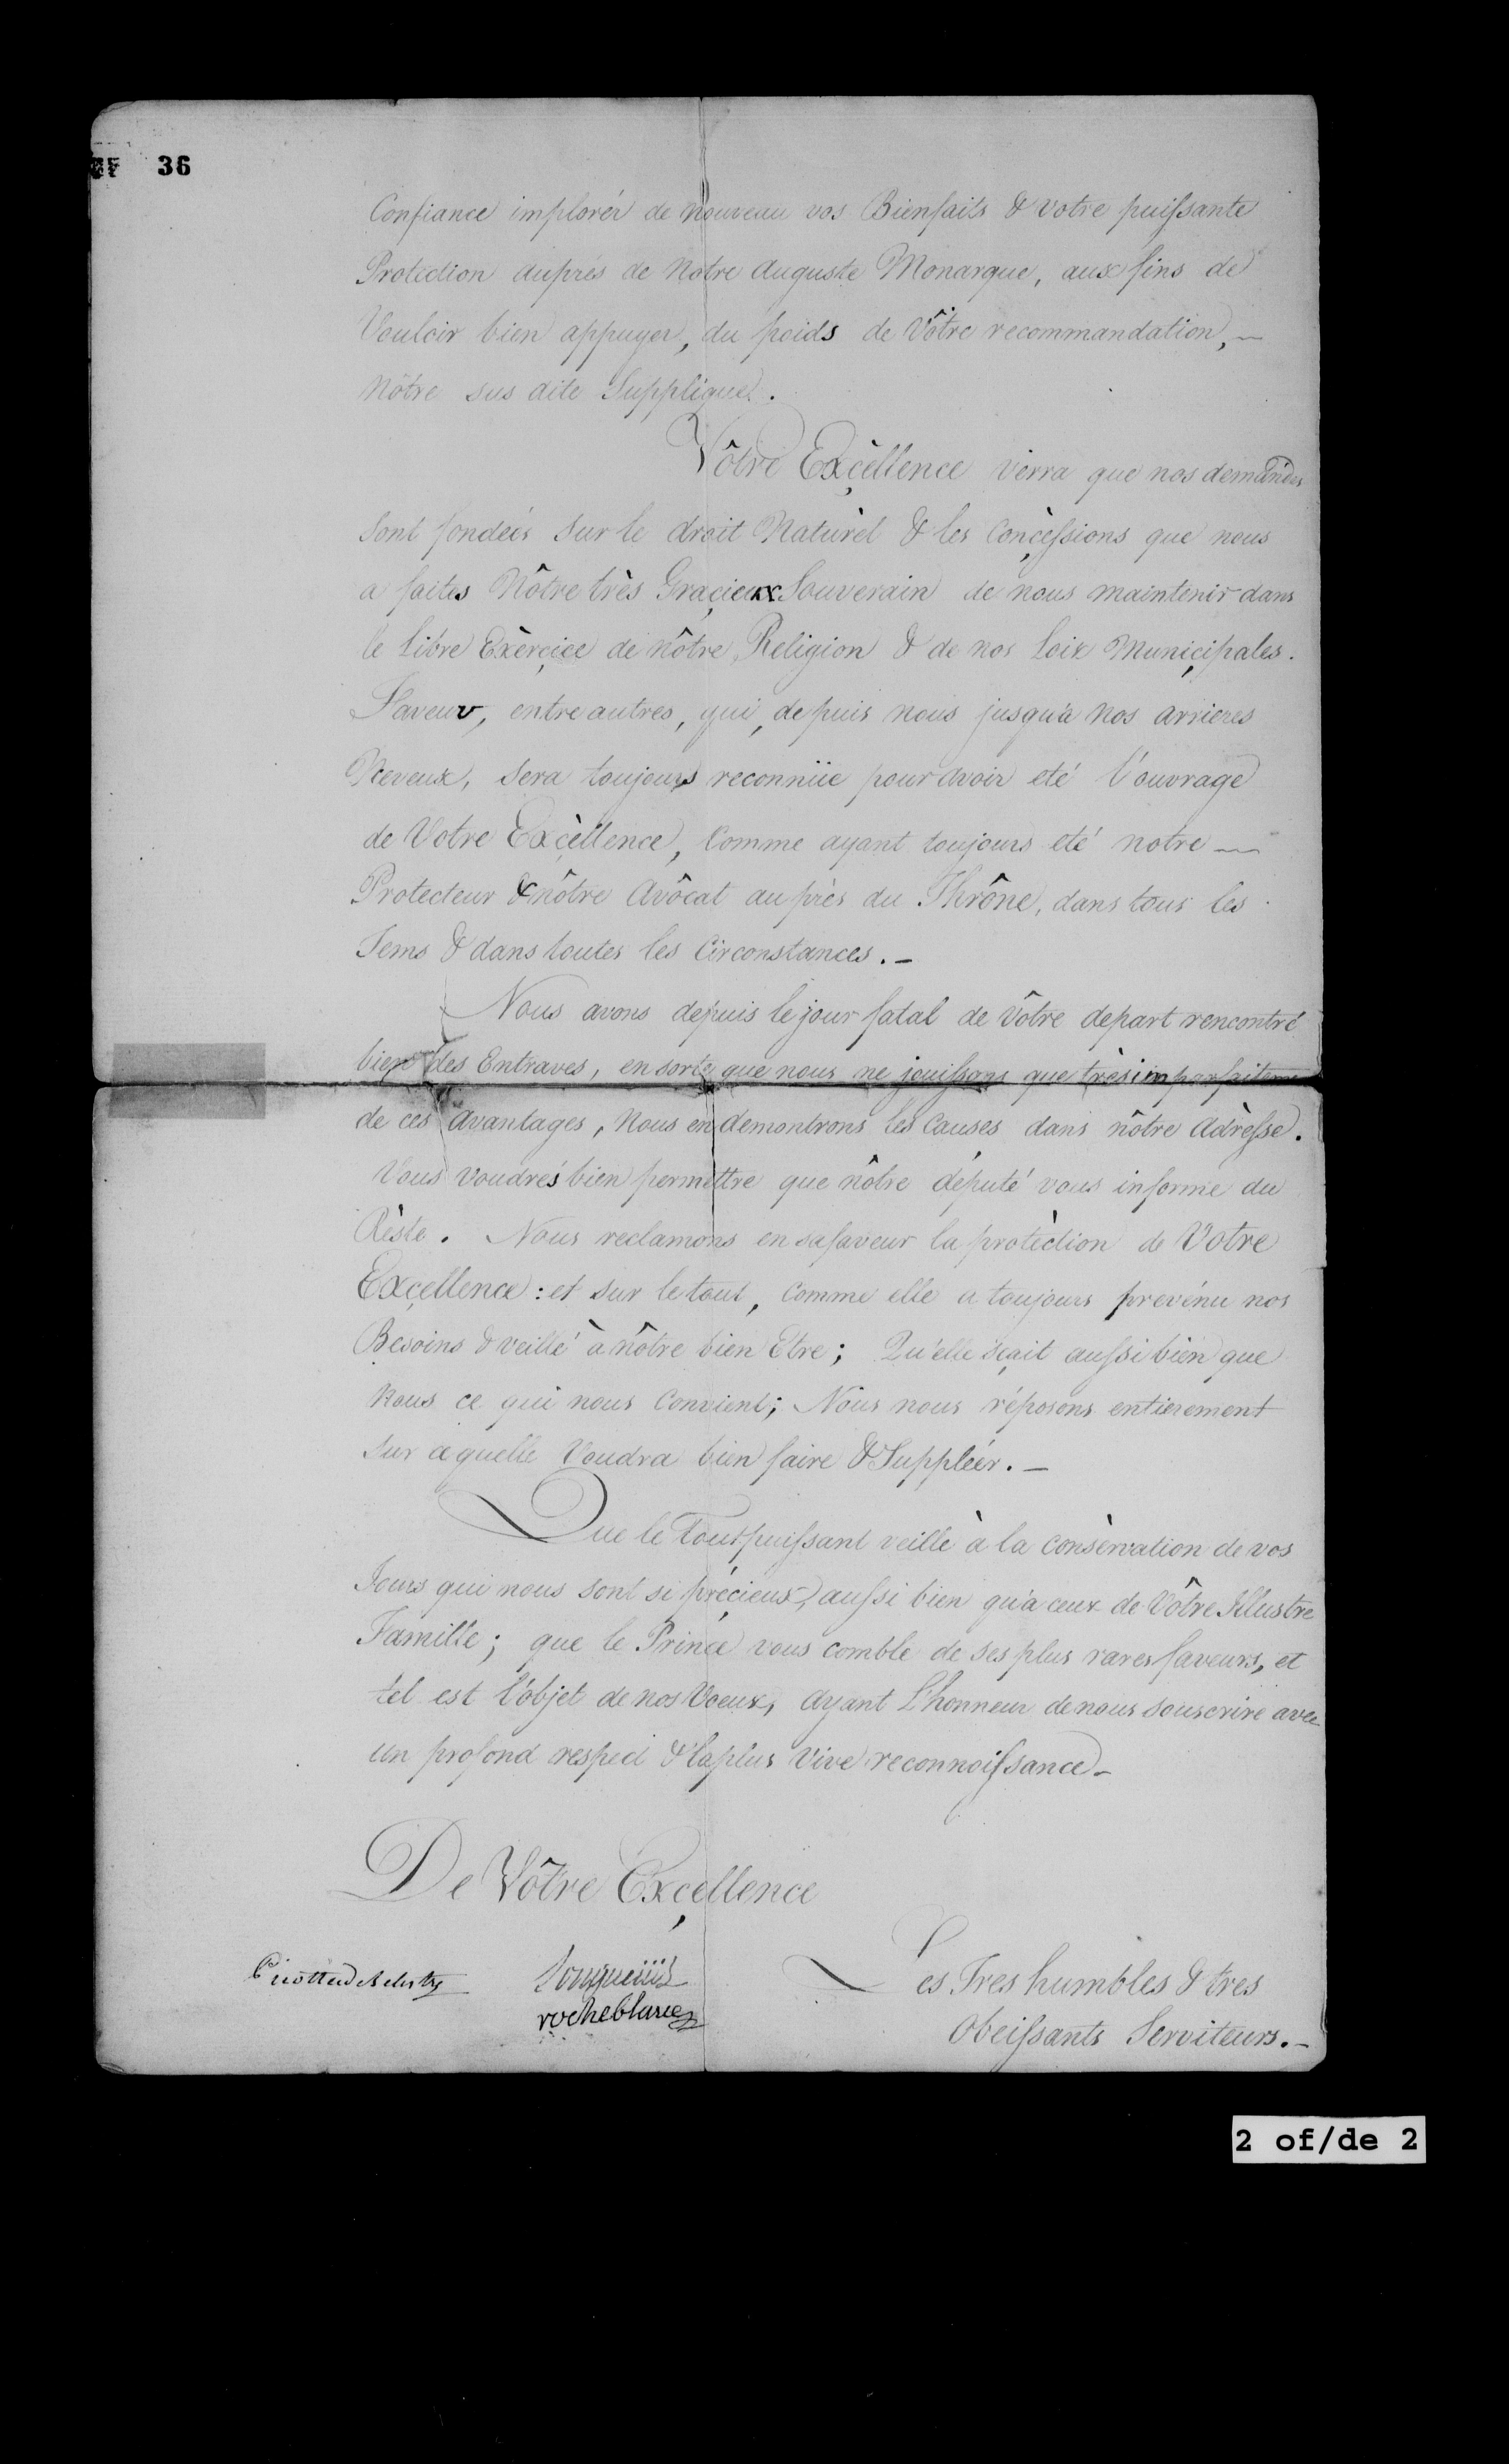 36
Confiance implorér de nouveau vos Bienfaits & votre puissante
Protection auprés de Notre Auguste Monarque, aux fins de
Vouloir bien appuyer, du poids de Vôtre recommandation,
Nôtre sus dite Supplique.
Vôtre Exçèllence verra que nos demandes
sont fondéés sur le droit Naturèl & les Conçèssions que nous
a faites Nôtre très Graçieux Souverain de nous maintenir dans
le libre Exèrçice de nôtre Religion & de nos Loix Muniçipales.
Faveur, entre autres, qui, depuis nous jusqu'à nos arrieres
Neveux, sera toujours reconnüe pour avoir eté l'ouvrage
de Votre Exçèllence, Comme ayant toujours eté notre
Protecteur & nôtre Avôcat auprès du Thrône, dans tous les
Tems & dans toutes les Circonstances. _
Nous avons depuis le jour fatal de Vôtre depart rencontré
bien des Entraves, en sorte que nous ne jouissons que très imparfaitement
de ces Avantages, Nous en demontrons les Causes dans nôtre Adrèsse.
Vous voudrés bien permettre que nôtre député vous informe du
Rèste. Nous reclamons en sa faveur la protèction de Votre
Exçellence: et sur le tout, Comme elle a toujours prevénu nos
Besoins & veillé à nôtre bien Etre; Qu'elle sçait aussi bien que
Nous ce qui nous Convient; Nous nous réposons entierement
sur ce quelle Voudra bien faire & Suppléer. _
Que le Tout puissant veille à la Consèrvation de vos
Jours qui nous sont si préçieux, aussi bien qu'à ceux de Vôtre Illustre
Famille; que le Prince vous comble de ses plus rares faveurs, et
tel est l'objet de nos Voeux, Ayant L'honneur de nous souscrire avec
un profond respect & la plus Vive reconnoissance_
De Vôtre Exçellence
Les Tres humbles & tres
Obeissants Serviteurs._
Longueüil
rocheblave
2 of/de 2